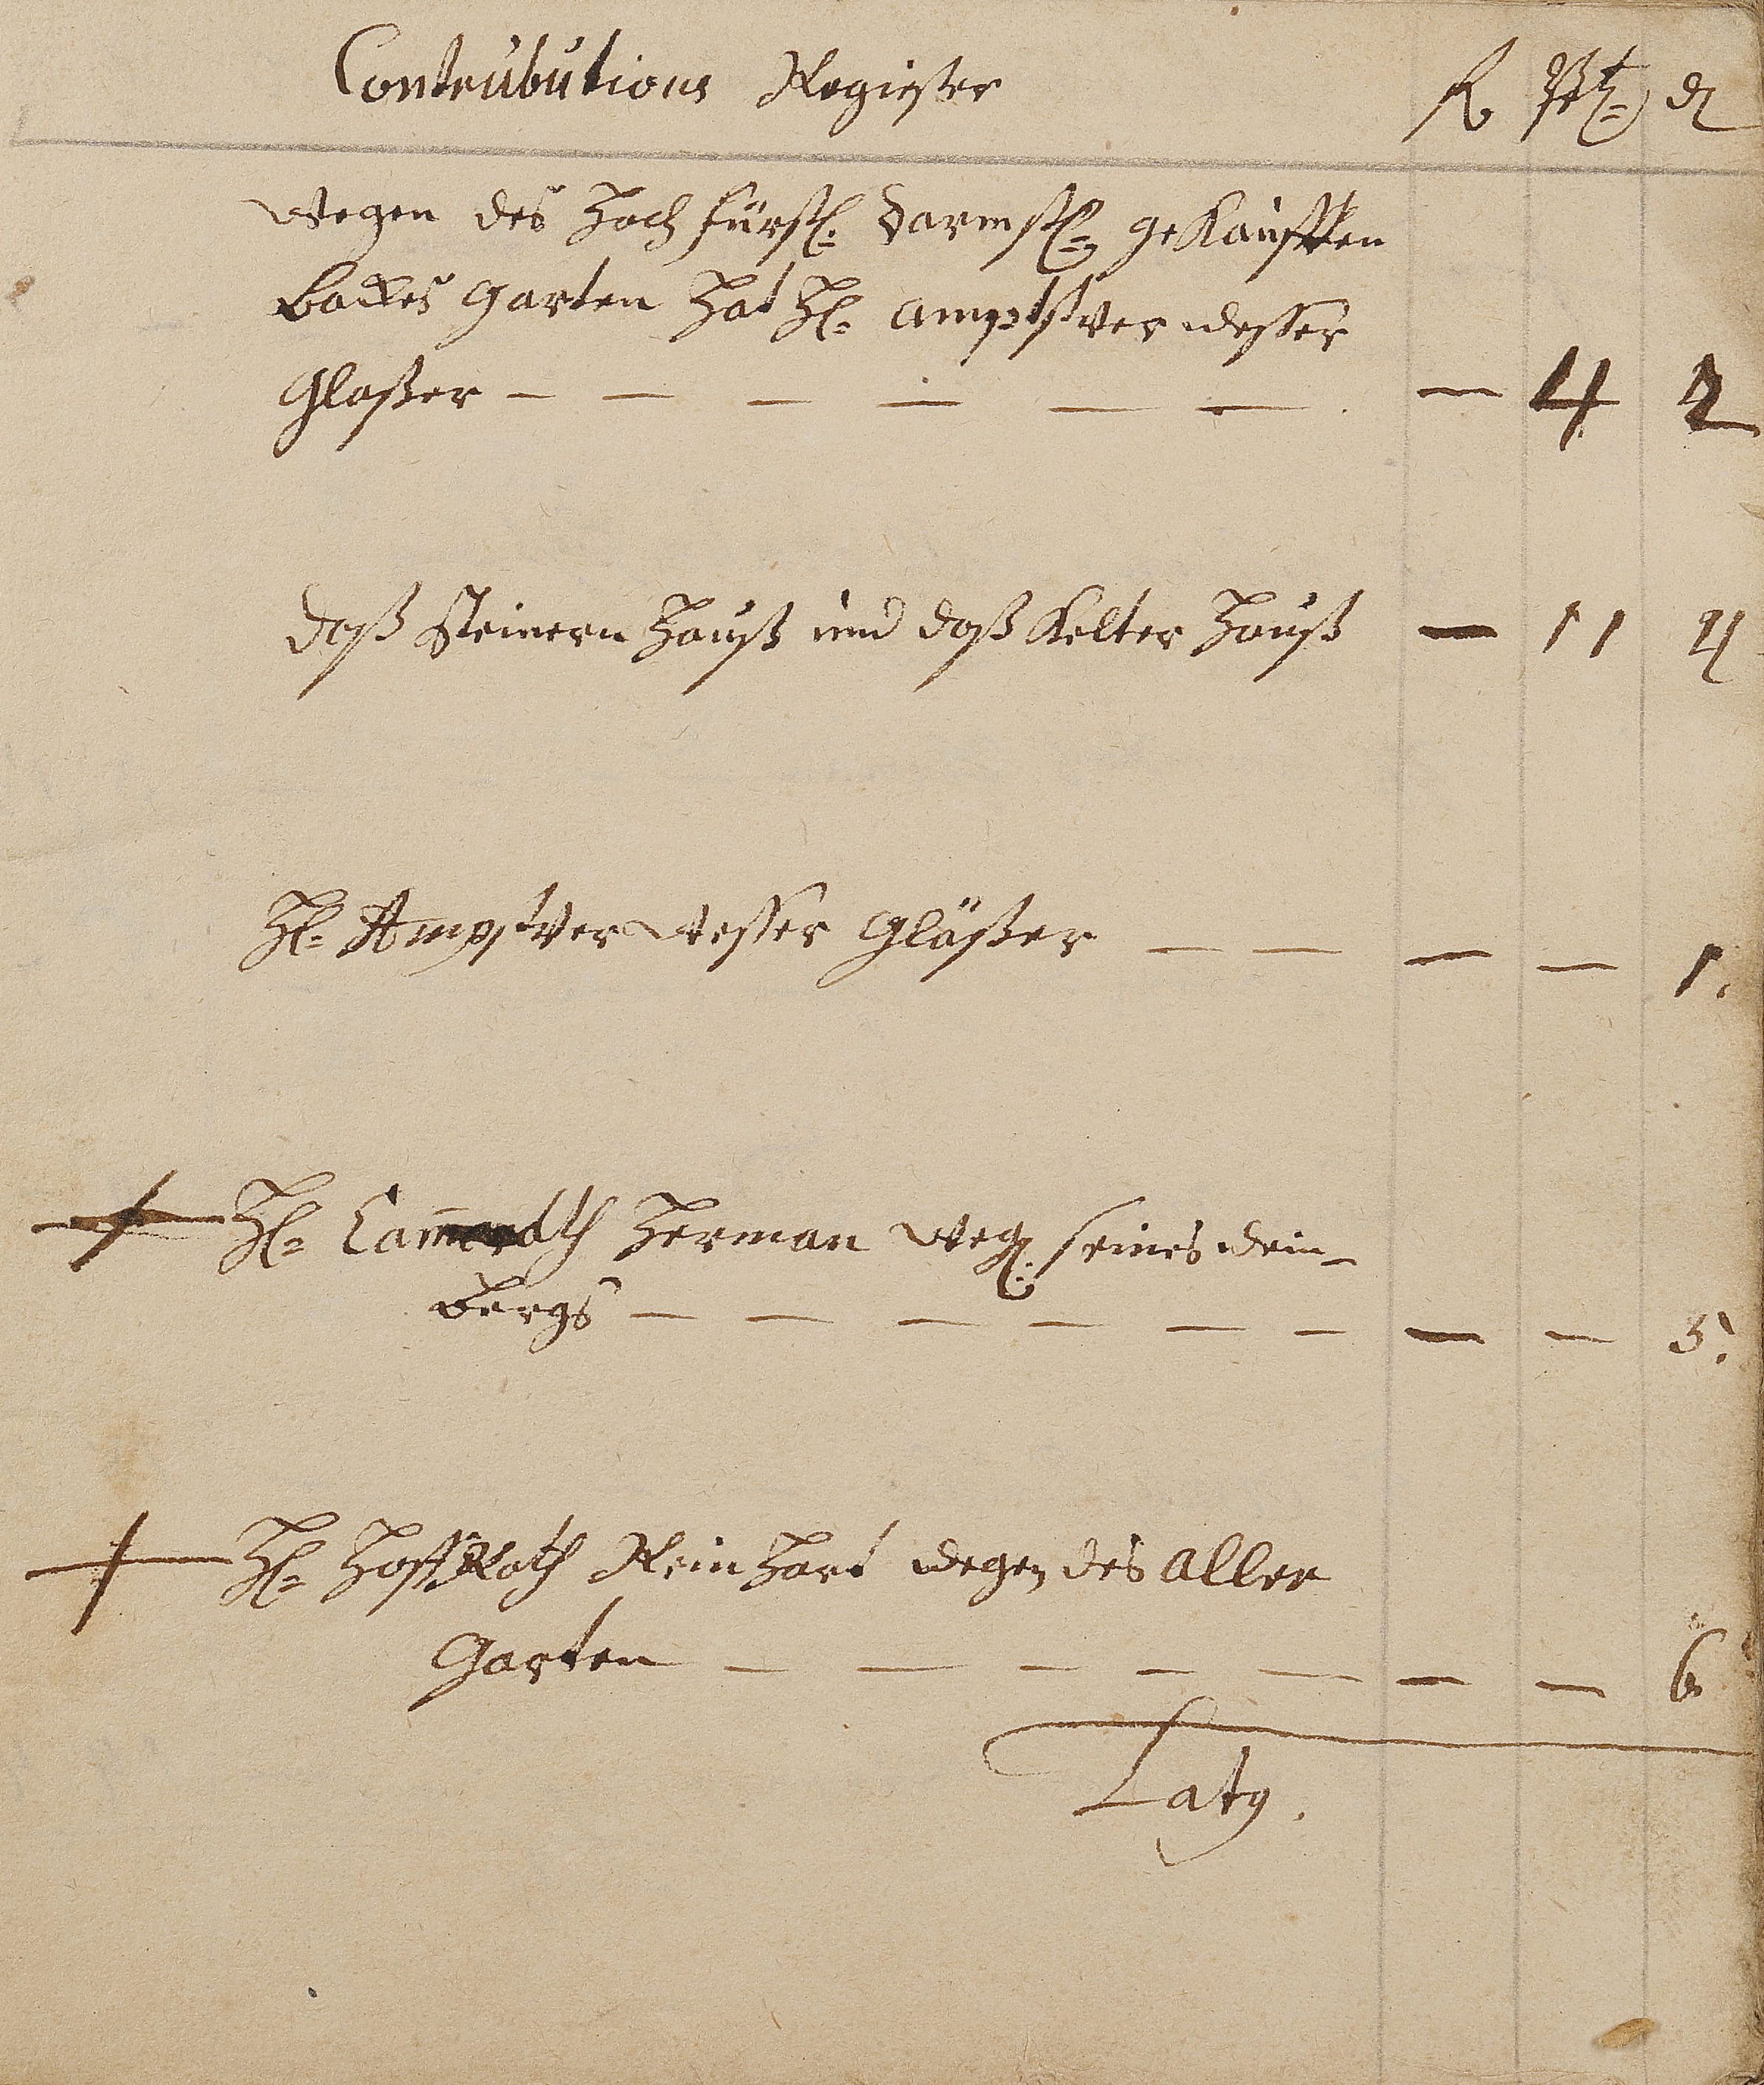 Contrubutions Register fl btz d
Wegen des Hochfürstl. Darmstl. gekaufften
Backes garten Hat Hl. amptsverwesser
Glaßer — — — — — — — 4 2
daß Steinern Hauß und daß Kelter Hauß — 11 4
Hl. Amptsverwesser Gläßer — — — — 1.
Hl. Camerath Herman weg. seines wein-
bergs — — — — — — — — 3.
Hl. HoffRath Reinhart wegen des aller
Garten — — — — — — — 6
Latg.